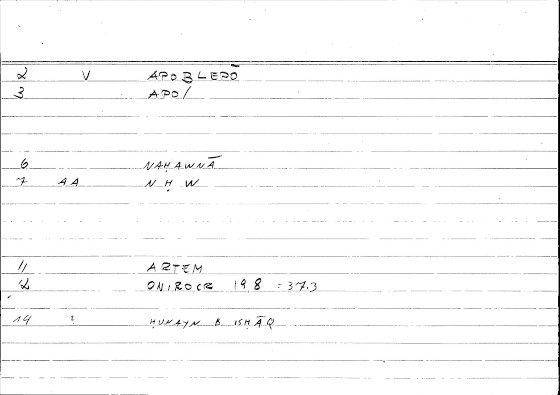 2 V APOBLEPŌ
3 APO/
6 NAḤAWNĀ
7 AA N Ḥ W
11 ARTEM
2 ONIROCR 19.8 = 37.3
14 : ḤUNAYN B. ISḤĀQ